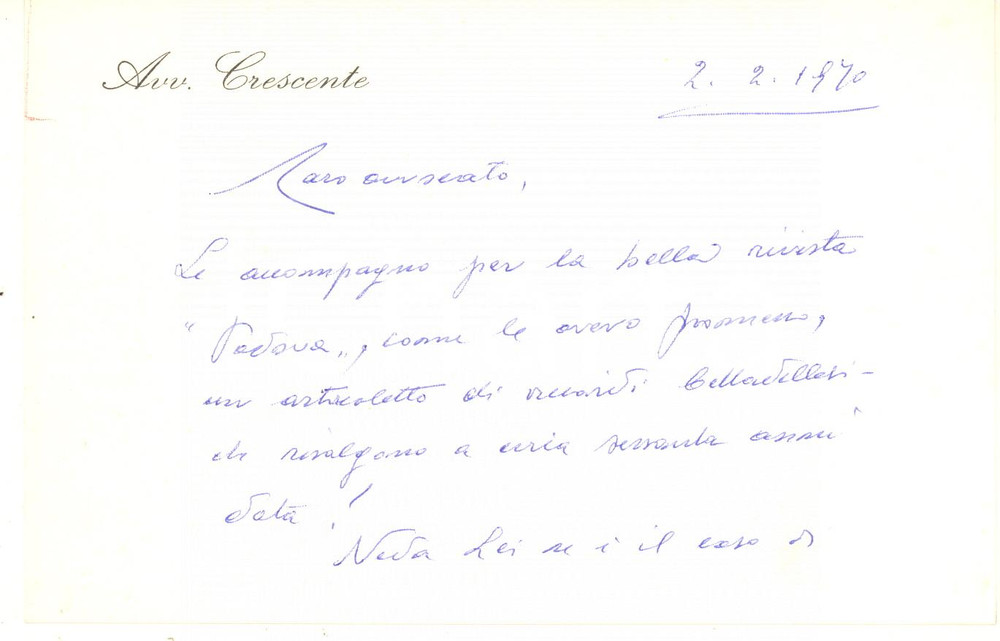 Avv. Crescente
2. 2. 1970
Caro avvocato,
Le accompagno per la bella rivista
"Padova", come le avevo promesso,
un articoletto di ricordi Cittadellesi -
che risalgono a circa sessanta anni
data!
Veda Lei se è il caso di